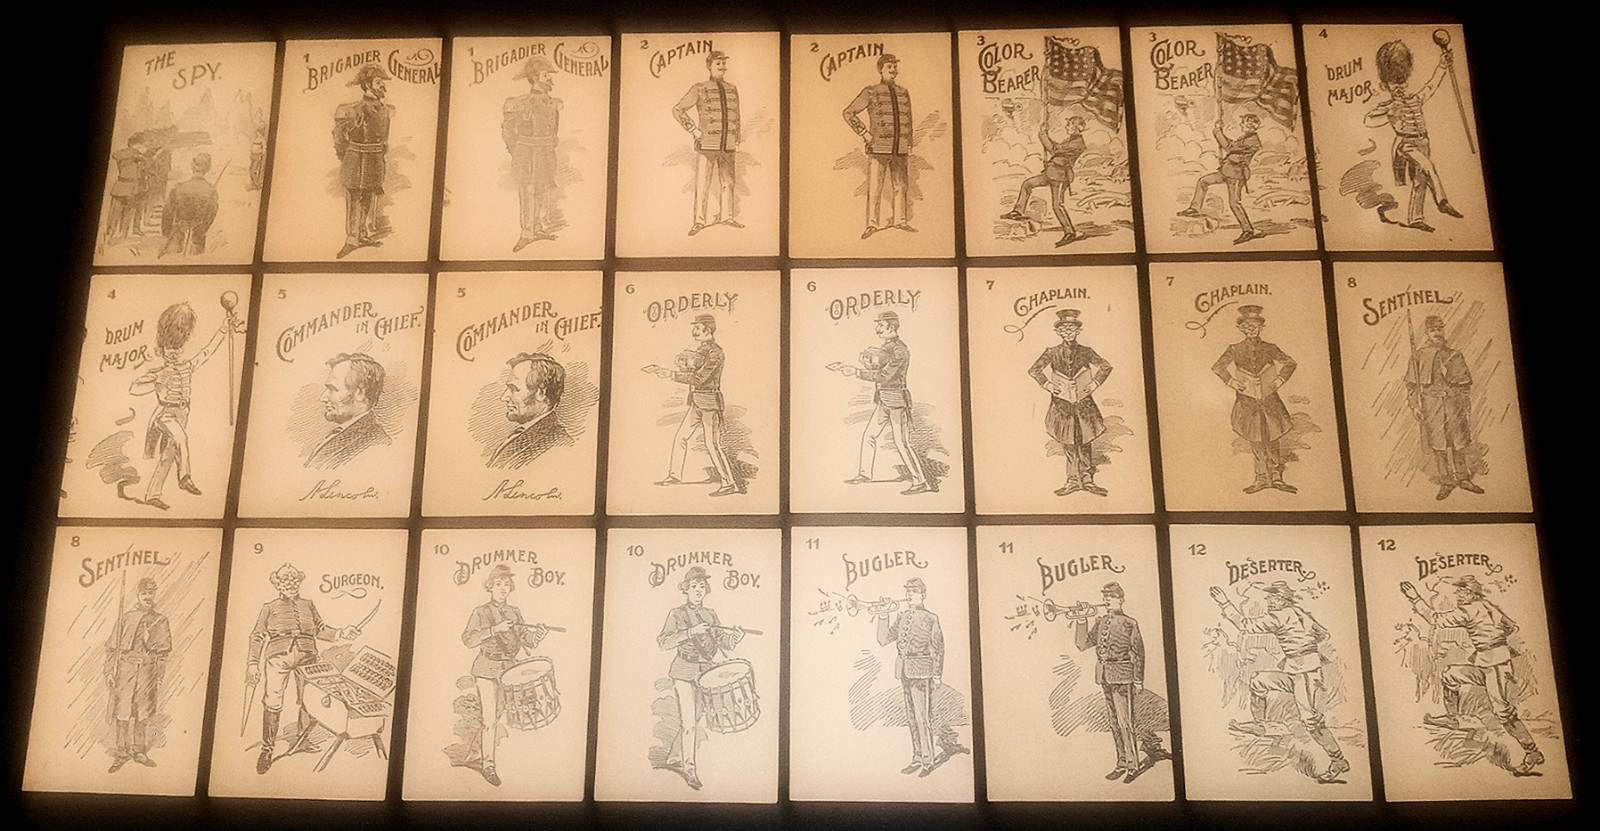 THE
SPY.
1
BRIGADIER GENERAL
1
BRIGADIER GENERAL
2
CAPTAIN
2
CAPTAIN
3
COLOR
BEARER
3
COLOR
BEARER
4
DRUM
MAJOR
4
DRUM
MAJOR
5
COMMANDER
IN CHIEF.
A Lincoln.
5
COMMANDER
IN CHIEF.
A Lincoln.
6
ORDERLY
6
ORDERLY
7
CHAPLAIN.
7
CHAPLAIN.
8
SENTINEL
8
SENTINEL
9
SURGEON.
10
DRUMMER
BOY.
10
DRUMMER
BOY.
11
BUGLER
11
BUGLER
12
DESERTER
12
DESERTER